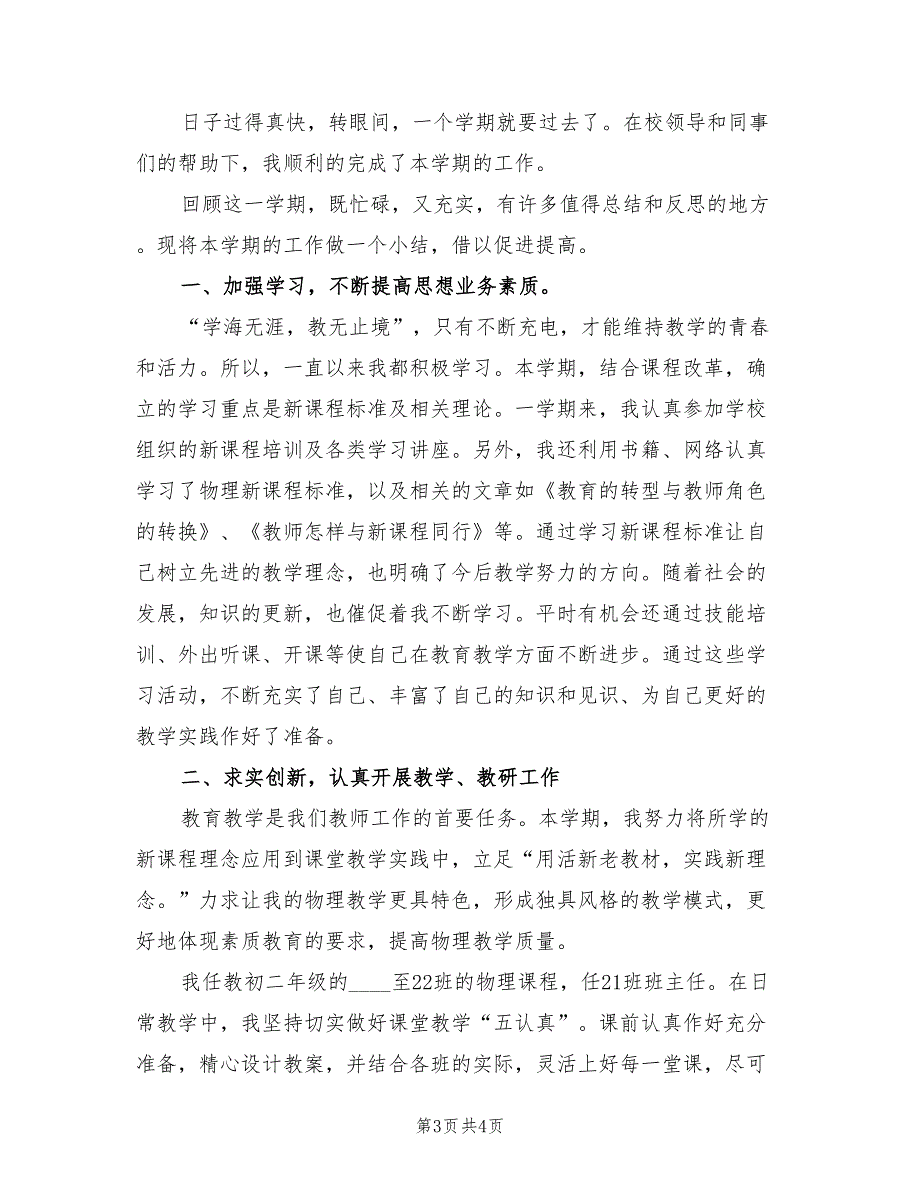 日子过得真快，转眼间，一个学期就要过去了。在校领导和同事
们的帮助下，我顺利的完成了本学期的工作。
回顾这一学期，既忙碌，又充实，有许多值得总结和反思的地方
。现将本学期的工作做一个小结，借以促进提高。
一、加强学习，不断提高思想业务素质。
“学海无涯，教无止境”，只有不断充电，才能维持教学的青春
和活力。所以，一直以来我都积极学习。本学期，结合课程改革，确
立的学习重点是新课程标准及相关理论。一学期来，我认真参加学校
组织的新课程培训及各类学习讲座。另外，我还利用书籍、网络认真
学习了物理新课程标准，以及相关的文章如《教育的转型与教师角色
的转换》、《教师怎样与新课程同行》等。通过学习新课程标准让自
己树立先进的教学理念，也明确了今后教学努力的方向。随着社会的
发展，知识的更新，也催促着我不断学习。平时有机会还通过技能培
训、外出听课、开课等使自己在教育教学方面不断进步。通过这些学
习活动，不断充实了自己、丰富了自己的知识和见识、为自己更好的
教学实践作好了准备。
二、求实创新，认真开展教学、教研工作
教育教学是我们教师工作的首要任务。本学期，我努力将所学的
新课程理念应用到课堂教学实践中，立足“用活新老教材，实践新理
念。”力求让我的物理教学更具特色，形成独具风格的教学模式，更
好地体现素质教育的要求，提高物理教学质量。
我任教初二年级的____至22班的物理课程，任21班班主任。在日
常教学中，我坚持切实做好课堂教学“五认真”。课前认真作好充分
准备，精心设计教案，并结合各班的实际，灵活上好每一堂课，尽可
第3页共4页